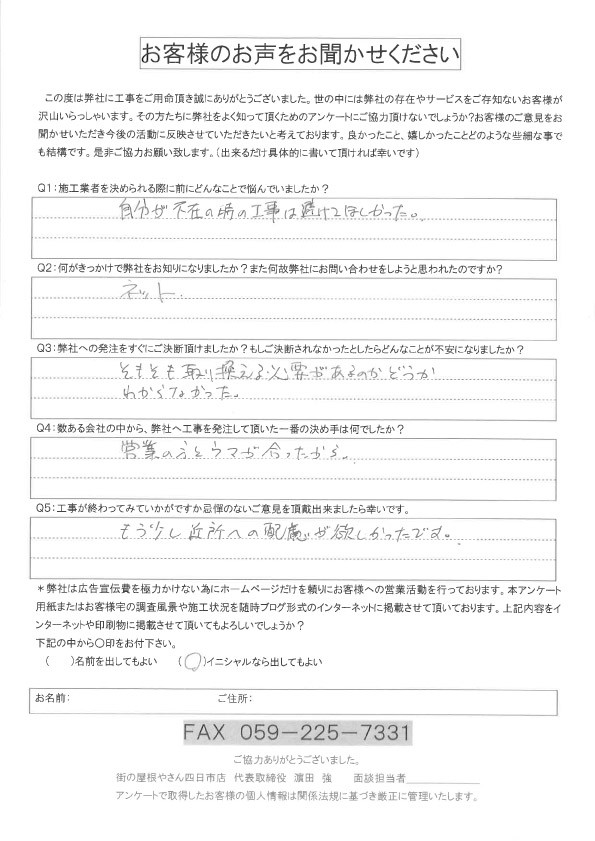 お客様のお声をお聞かせください
この度は弊社に工事をご用命頂き誠にありがとうございました。世の中には弊社の存在やサービスをご存知ないお客様が
沢山いらっしゃいます。その方たちに弊社をよく知って頂くためのアンケートにご協力頂けないでしょうか?お客様のご意見をお
聞かせいただき今後の活動に反映させていただきたいと考えております。良かったこと、嬉しかったことどのような些細な事で
も結構です。是非ご協力お願い致します。(出来るだけ具体的に書いて頂ければ幸いです)
Q1:施工業者を決められる際に前にどんなことで悩んでいましたか?
自分が不在の時の工事は避けてほしかった。
Q2:何がきっかけで弊社をお知りになりましたか?また何故弊社にお問い合わせをしようと思われたのですか?
ネット.
Q3:弊社への発注をすぐにご決断頂けましたか?もしご決断されなかったとしたらどんなことが不安になりましたか?
そもそも取り換える必要があるのかどうか
わからなかった。
Q4:数ある会社の中から、弊社へ工事を発注して頂いた一番の決め手は何でしたか?
営業の方とウマが合ったから。
Q5:工事が終わってみていかがですか忌憚のないご意見を頂戴出来ましたら幸いです。
もう少し近所への配慮が欲しかったです。
*弊社は広告宣伝費を極力かけない為にホームページだけを頼りにお客様への営業活動を行っております。本アンケート
用紙またはお客様宅の調査風景や施工状況を随時ブログ形式のインターネットに掲載させて頂いております。上記内容をイ
ンターネットや印刷物に掲載させて頂いてもよろしいでしょうか?
下記の中から〇印をお付下さい。
( )名前を出してもよい (〇)イニシャルなら出してもよい
お名前: ご住所:
FAX 059-225-7331
ご協力ありがとうございました。
街の屋根やさん四日市店 代表取締役 濵田 強 面談担当者
アンケートで取得したお客様の個人情報は関係法規に基づき厳正に管理いたします。